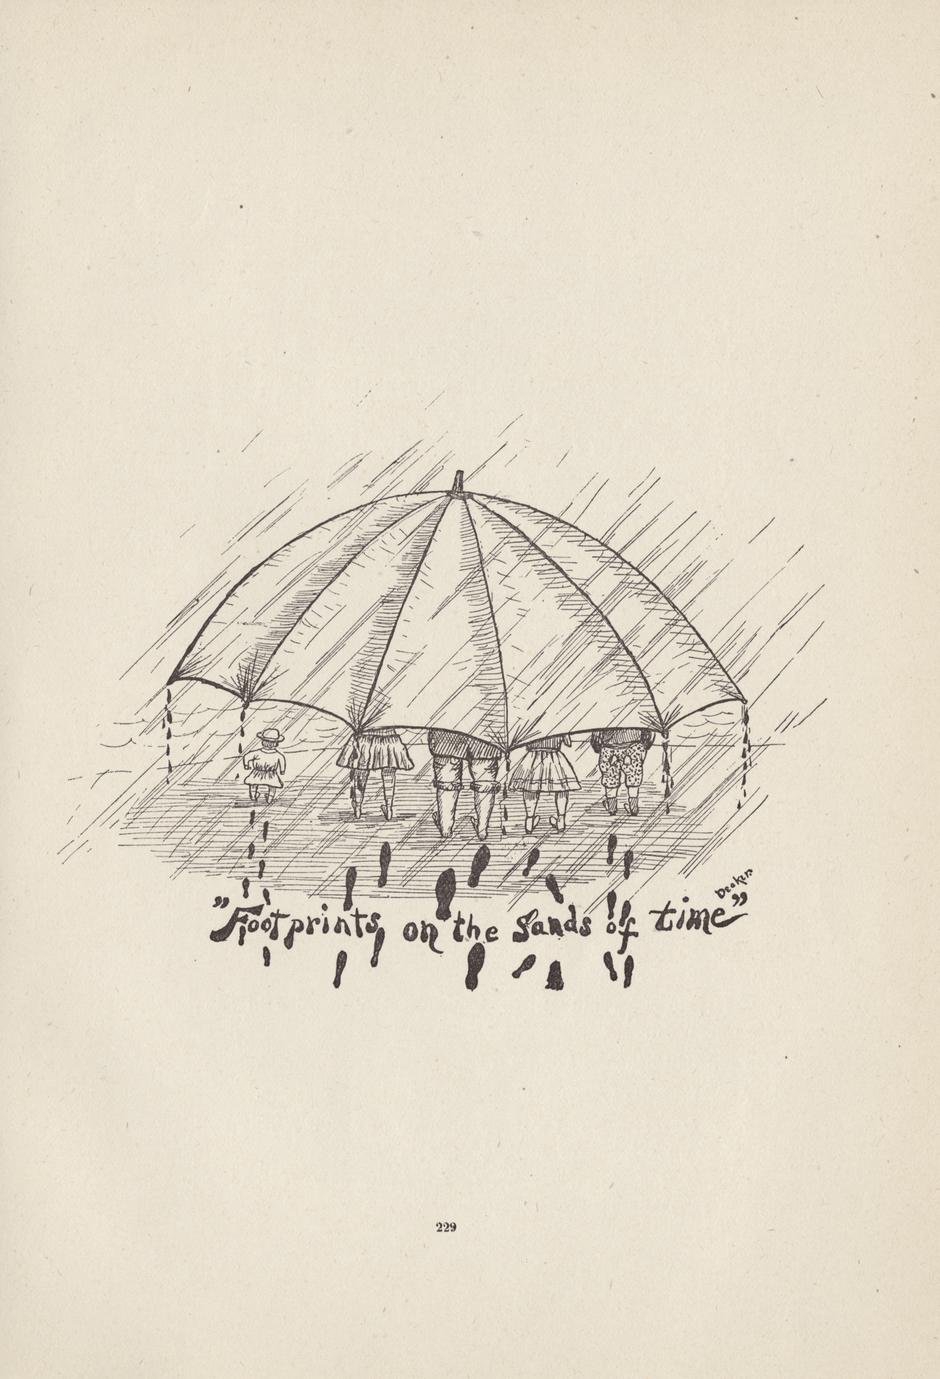 Decker
"Footprints on the sands of time"
229